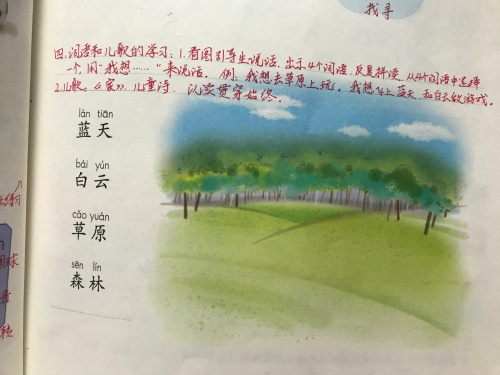 找寻
四.词语和儿歌的学习:1.看图引导生说话,出示4个词语,反复拼读,从4个词语中选择
一个,用“我想……”来说话。例:我想去草原上玩。我想和蓝天、和白云做游戏。
2.儿歌。《家》儿童诗。以读贯穿始终。
lán tiān
蓝天
bái yún
白云
cǎo yuán
草原
sēn lín
森林